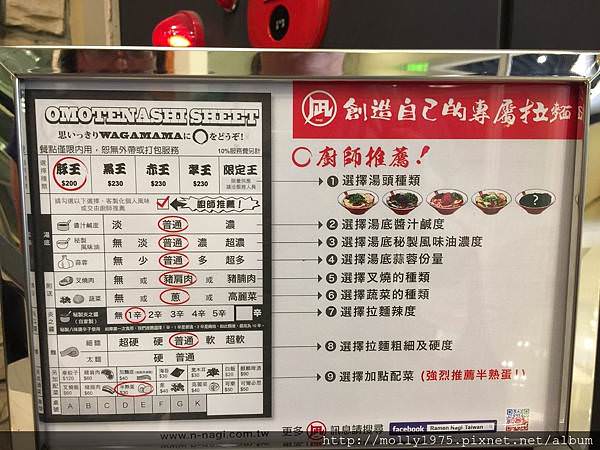 OMOTENASHI SHEET
思いっきりWAGAMAMAに〇をどうぞ!
餐點僅限內用，恕無外帶或打包服務 10%服務費另計
選擇種類
豚王 黒王 赤王 翠王 限定王
$200 $230 $230 $230
請勾選以下選擇，客製化個人風味
或交由廚師推薦
廚師推薦!
湯底
醬汁鹹度 淡 普通 濃
秘製風味油 無 淡 普通 濃 超濃
蒜蓉 無 少 普通 多 超多
附店
叉燒肉 無 或 豬肩肉 或 豬腩肉
蔬菜 無 或 蔥 或 高麗菜
炎之醬
秘製炎之醬(自家製) 無 1辛 2辛 3辛 4辛 5辛 辛
麵
細麵 超硬 硬 普通 軟 超軟
太麵 硬 普通
另加配菜
半熟蛋
海苔
木耳
白飯
蔥
高麗菜
可樂
桌號 A B C D E F G K
www.n-nagi.com.tw
凪 創造自己的專屬拉麵
〇廚師推薦!
❶ 選擇湯頭種類
?
❷ 選擇湯底醬汁鹹度
❸ 選擇湯底秘製風味油濃度
❹ 選擇湯底蒜蓉份量
❺ 選擇叉燒的種類
❻ 選擇蔬菜的種類
❼ 選擇拉麵辣度
❽ 選擇拉麵粗細及硬度
❾ 選擇加點配菜 (強烈推薦半熟蛋!)
更多 凪 訊息請搜尋 facebook Ramen Nagi Taiwan
http://molly1975.pixnet.net/album